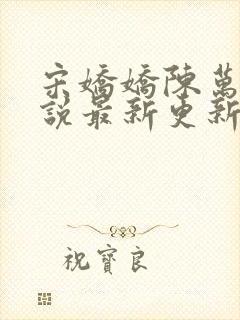 宋嬌嬌陳萬
說最新更新
祝寶良